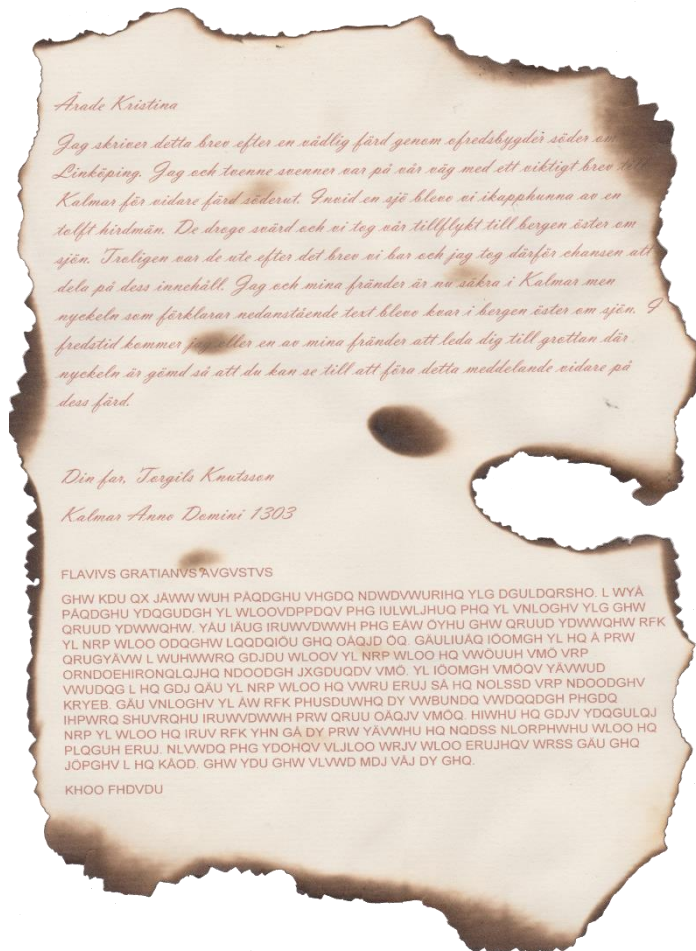 Ärade Kristina
Jag skriver detta brev efter en vådlig färd genom ofredsbygder söder om
Linköping. Jag och tvenne svenner var på vår väg med ett viktigt brev till
Kalmar för vidare färd söderut. Invid en sjö blevo vi ikapphunna av en
tolft hirdmän. De drogo svärd och vi tog vår tillflykt till bergen öster om
sjön. Troligen var de ute efter det brev vi bar och jag tog därför chansen att
dela på dess innehåll. Jag och mina fränder är nu säkra i Kalmar men
nyckeln som förklarar nedanstående text blevo kvar i bergen öster om sjön. I
fredstid kommer jag eller en av mina fränder att leda dig till grottan där
nyckeln är gömd så att du kan se till att föra detta meddelande vidare på
dess färd.
Din far, Torgils Knutsson
Kalmar Anno Domini 1303
FLAVIVS GRATIANVS AVGVSTVS
GHW KDU QX JÄWW WUH PÅQDGHU VHGDQ NDWDVWURIHQ YLG DGULDQRSHO. L WYÅ
PÅQDGHU YDQGUDGH YL WLOOVDPPDQV PHG IULWLJHUQ PHQ YL VNLOGHV YLG GHW
QRUUD YDWWQHW. YÅU IÄUG IRUWVDWWH PHG EÅW ÖYHU GHW QRUUD YDWWQHW RFK
YL NRP WLOO ODQGHW LQQDQIÖU GHQ OÅQJD ÖQ. GÄULIUÅQ IÖOMGH YL HQ Å PRW
QRUGYÄVW L WUHWWRQ GDJDU WLOOV YL NRP WLOO HQ VWÖUUH VMÖ VRP
ORNDOEHIRONQLQJHQ NDOODGH JXGDUQDV VMÖ. YL IÖOMGH VMÖQV YÄVWUD
VWUDQG L HQ GDJ QÄU YL NRP WLOO HQ VWRU ERUJ SÅ HQ NOLSSD VRP NDOODGHV
KRYEB. GÄU VNLOGHV YL ÅW RFK PHUSDUWHQ DY VWBUNDQ VWDQQDGH PHGDQ
IHPWRQ SHUVRQHU IRUWVDWWH PRW QRUU OÄQJV VMÖQ. HIWHU HQ GDJV YDQGULQJ
NRP YL WLOO HQ IRUV RFK YHN GÅ DY PRW YÄVWHU HQ NQDSS NLORPHWHU WLOO HQ
PLQGUH ERUJ. NLVWDQ PHG YDOHQV VLJLOO WRJV WLOO ERUJHQV WRSS GÄU GHQ
JÖPGHV L HQ KÅOD. GHW YDU GHW VLVWD MDJ VÅJ DY GHQ.
KHOO FHDVDU